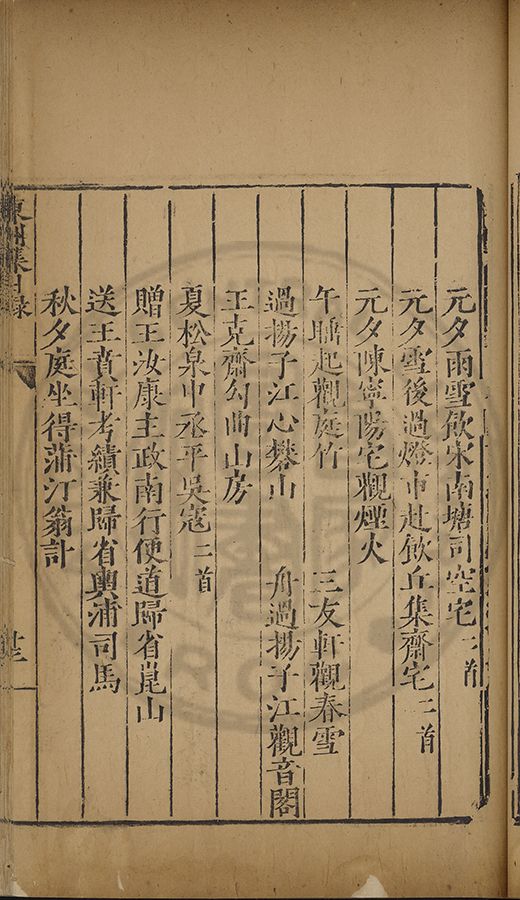 元夕雨雪飲宋南塘司空宅二首
元夕雪後過燈市赴飲丘集齋宅二首
元夕陳寧陽宅觀煙火
午睡起觀庭竹 三友軒觀春雪
過揚子江心礬山 舟過揚子江觀音閣
王克齋勾曲山房
夏松泉中丞平吳寇二首
贈王汝康主政南行便道歸省崑山
送王賁軒考績兼歸省輿浦司馬
秋夕庭坐得蒲汀翁訃
東洲集目錄 廿三